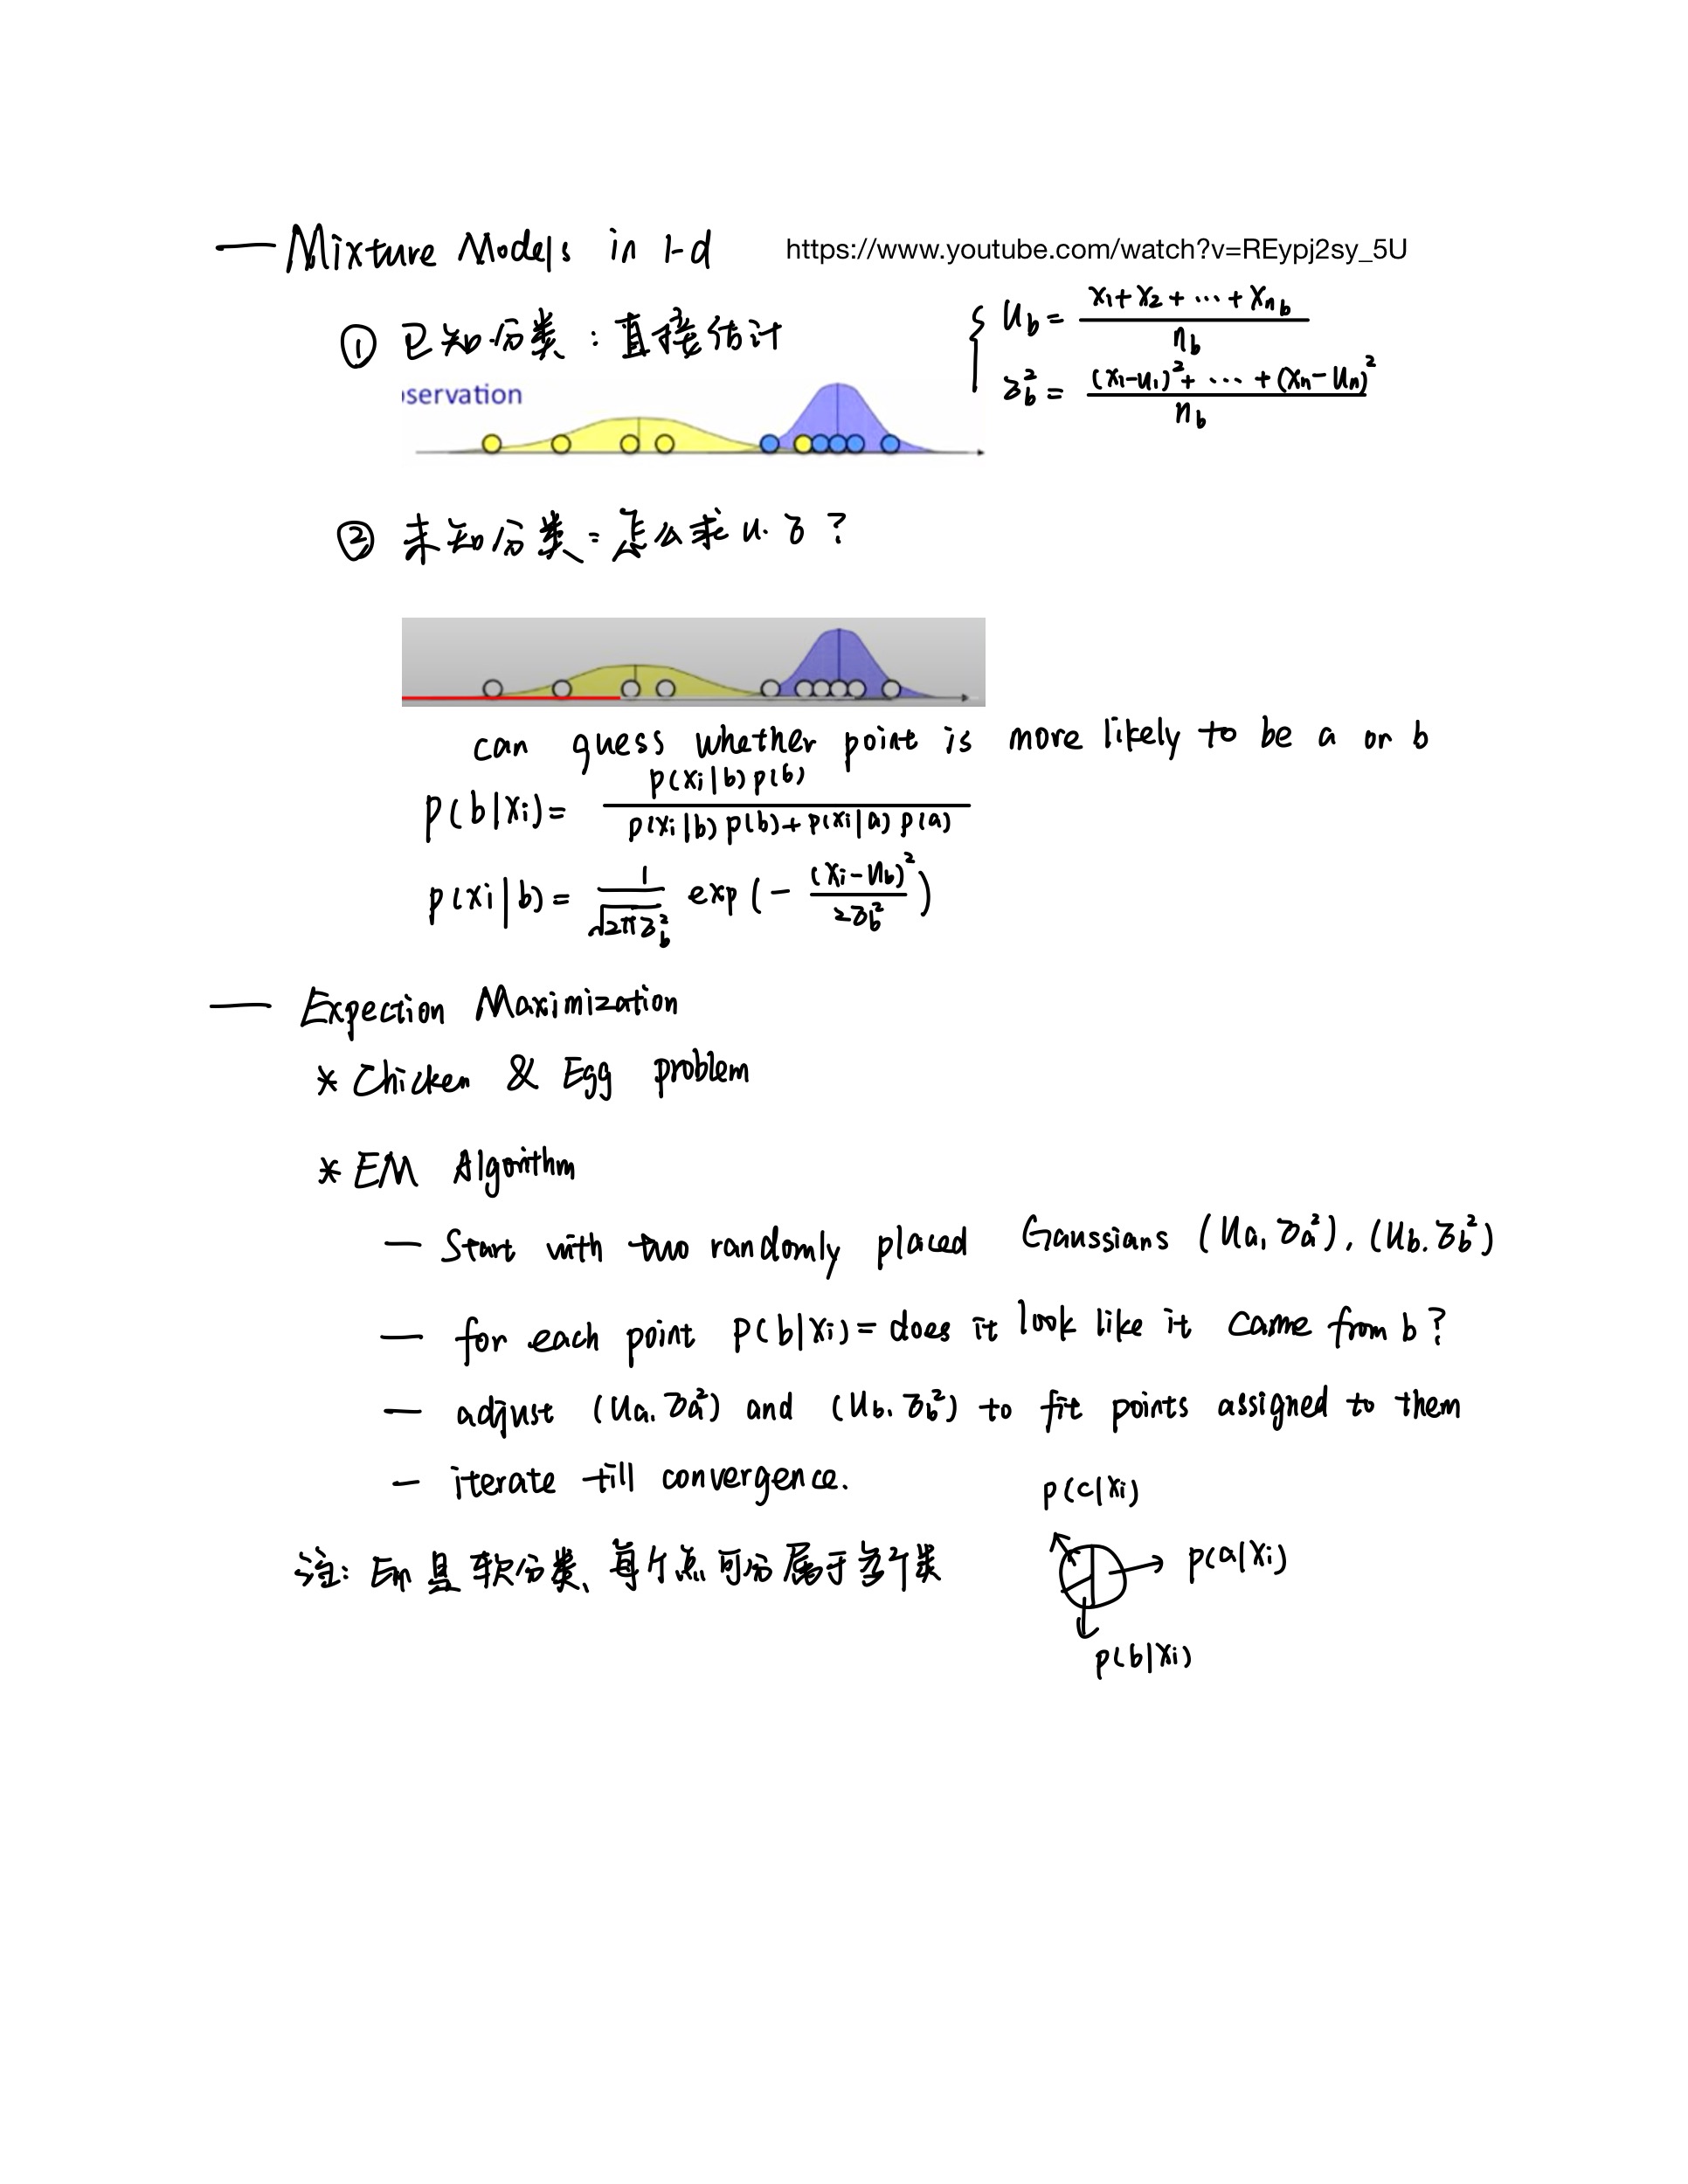 — Mixture Models in 1-d https://www.youtube.com/watch?v=REypj2sy_5U
① 已知分类：直接估计
u_b = (x₁+x₂+⋯+x_{n_b}) / n_b
σ_b² = ((x₁-u₁)²+⋯+(x_n-u_n)²) / n_b
servation
② 未知分类：怎么求 u. σ？
can guess whether point is more likely to be a or b
p(b|xi) = p(xi|b) p(b) / (p(xi|b) p(b) + p(xi|a) p(a))
p(xi|b) = 1/√(2πσ_b²) exp(-(xi-u_b)²/2σ_b²)
— Expection Maximization
* Chicken & Egg problem
* EM Algorithm
— Start with two randomly placed Gaussians (ua, σa²), (ub. σb²)
— for each point P(b|xi) = does it look like it came from b?
— adjust (ua. σa²) and (ub. σb²) to fit points assigned to them
— iterate till convergence.
p(c|xi)
注: Em是软分类、每个点可分属于多个类
p(a|xi)
p(b|xi)